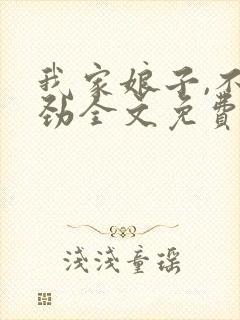 我家娘子,不
劲全文免费
浅浅童瑶